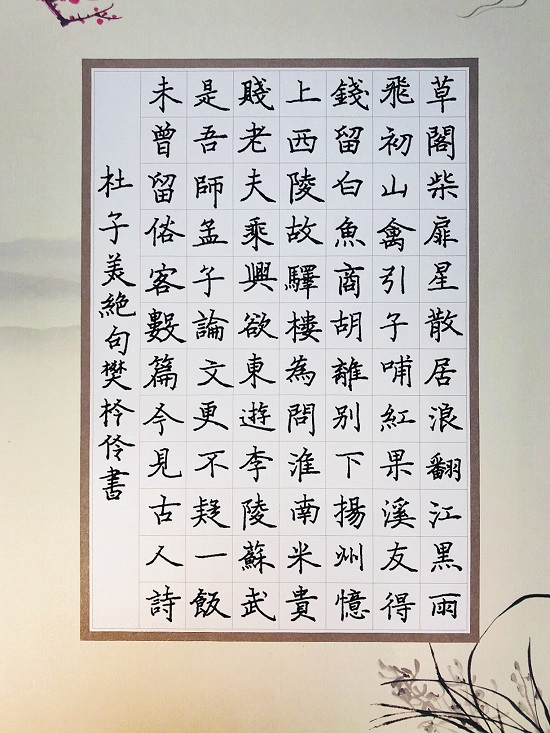 草閣柴扉星散居浪翻江黑雨
飛初山禽引子哺紅果溪友得
錢留白魚商胡離别下揚州憶
上西陵故驛樓為問淮南米貴
賤老夫乘興欲東遊李陵蘇武
是吾師孟子論文更不疑一飯
未曾留俗客數篇今見古人詩
杜子美絕句樊柃伶書